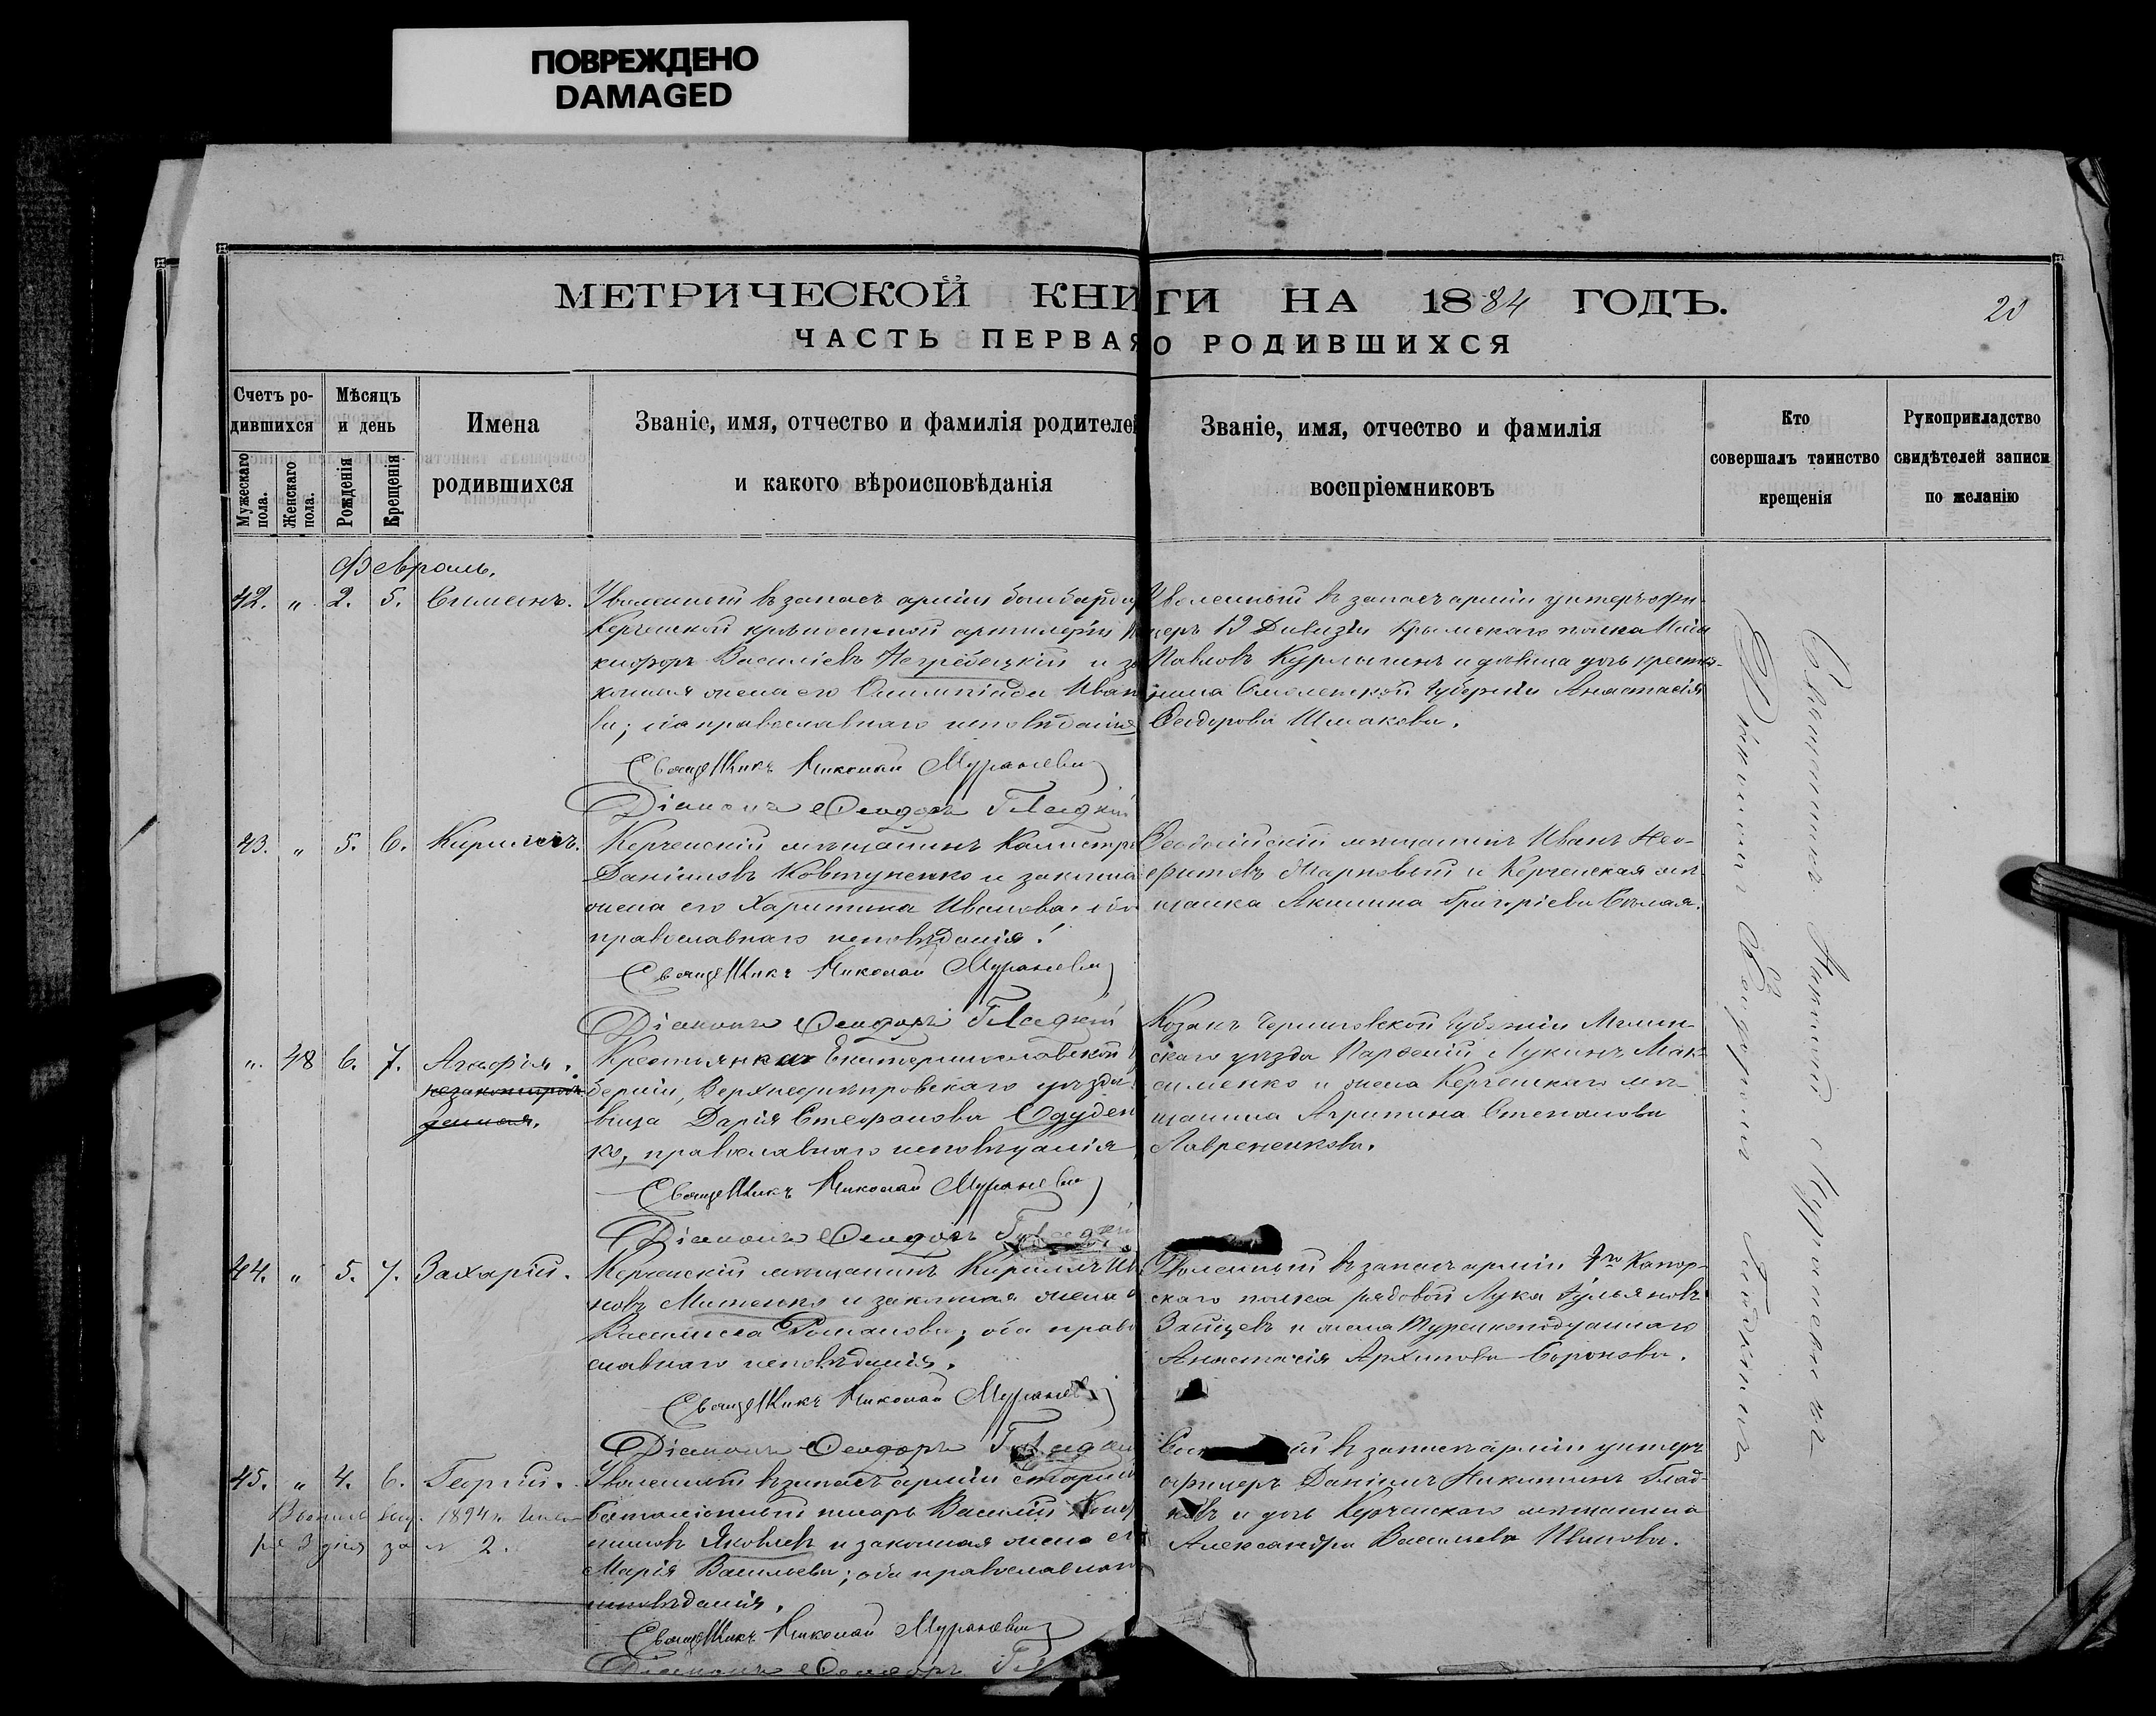 ПОВРЕЖДЕНО
DAMAGED
МЕТРИЧЕСКОЙ КНИГИ НА 1884 ГОДЪ.
20
ЧАСТЬ ПЕРВАЯ О РОДИВШИХСЯ
Счетъ родившихся
Мужескаго пола.
Женскаго пола.
Мѣсяцъ и день
Рожденія
Крещенія
Имена
родившихся
Званіе, имя, отчество и фамилія родителей
и какого вѣроисповѣданія
Званіе, имя, отчество и фамилія
воспріемниковъ
Кто
совершалъ таинство
крещенія
Рукоприкладство
свидѣтелей записи
по желанію
Февраль.
42. " 2. 5. Симеонъ.
Уволенный въ запасъ арміи бомбардир
Керченской крѣпостной артилеріи
Василіевъ Негребецкій и за
конная жена его Олимпіада Иван
ва; православнаго исповѣданія
Священникъ Николай
Діаконъ Ѳеодоръ Гладкій
Уволенный въ запасъ арміи унтеръ офи-
церъ 13 Дивизіи Крымскаго полка
Павловъ и дѣвица дочь крестья-
нина Смоленской Губерніи Анастасія
Ѳеодорова Шмакова.
43. " 5. 6. Кириллъ.
Керченскій мѣщанинъ Калистр
Даніиловъ Ковтуненко и законна
жена его Харитина Иванова,
православнаго исповѣданія.
Священникъ Николай
Діаконъ Ѳеодоръ Гладкій
Ѳеодосійскій мѣщанинъ Иванъ Нео-
фитовъ и Керченская мѣ-
щанка Акилина Григоріева Бѣлая.
". 48 6. 7. Агафія.
незаконнорож
денная.
Крестьянка Екатеринославской
берніи, Верхнеднѣпровскаго уѣзда
вица Дарія Стефанова Одуден
ко, православнаго исповѣданія
Священникъ Николай
Діаконъ Ѳеодоръ Гладкій
Козакъ Черниговской Губерніи Мглин-
скаго уѣзда Парфеній Лукинъ Мак-
сименко и жена Керченскаго мѣ-
щанина Агрипина Степанова
Лавренекова.
44. " 5. 7. Захарій.
Керченскій мѣщанинъ Кириллъ Ив
новъ и законная жена
Василиса Романова; оба право
славнаго исповѣданія.
Священникъ Николай
Діаконъ Ѳеодоръ
въ запасъ арміи
скаго полка рядовой Лука Ульяновъ
Зайцевъ и жена Турецкоподданнаго
Анастасія Архипова
45. " 4. 6. Георгій.
1894 г.
3 дня за № 2.
Уволенный въ запасъ арміи старшій
баталіонный писарь Василій
Яковлевъ и законная жена
Марія Васильева; оба православнаго
исповѣданія.
Священникъ Николай
Діаконъ Ѳеодоръ
въ запасъ арміи унтеръ
офицеръ Даніилъ Никитинъ Глад-
ковъ и дочь Керченскаго мѣщанина
Александра Васильева Иванова.
Священникъ
Діаконъ Ѳеодоръ Гладкій